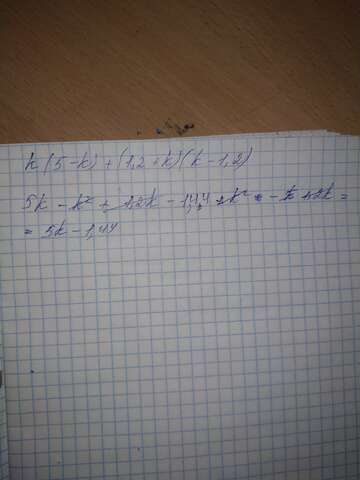 k(5-k)+(1,2+k)(k-1,2)
5k - k² + 1,2k - 1,44 + k² - 1,2k =
= 5k - 1,44